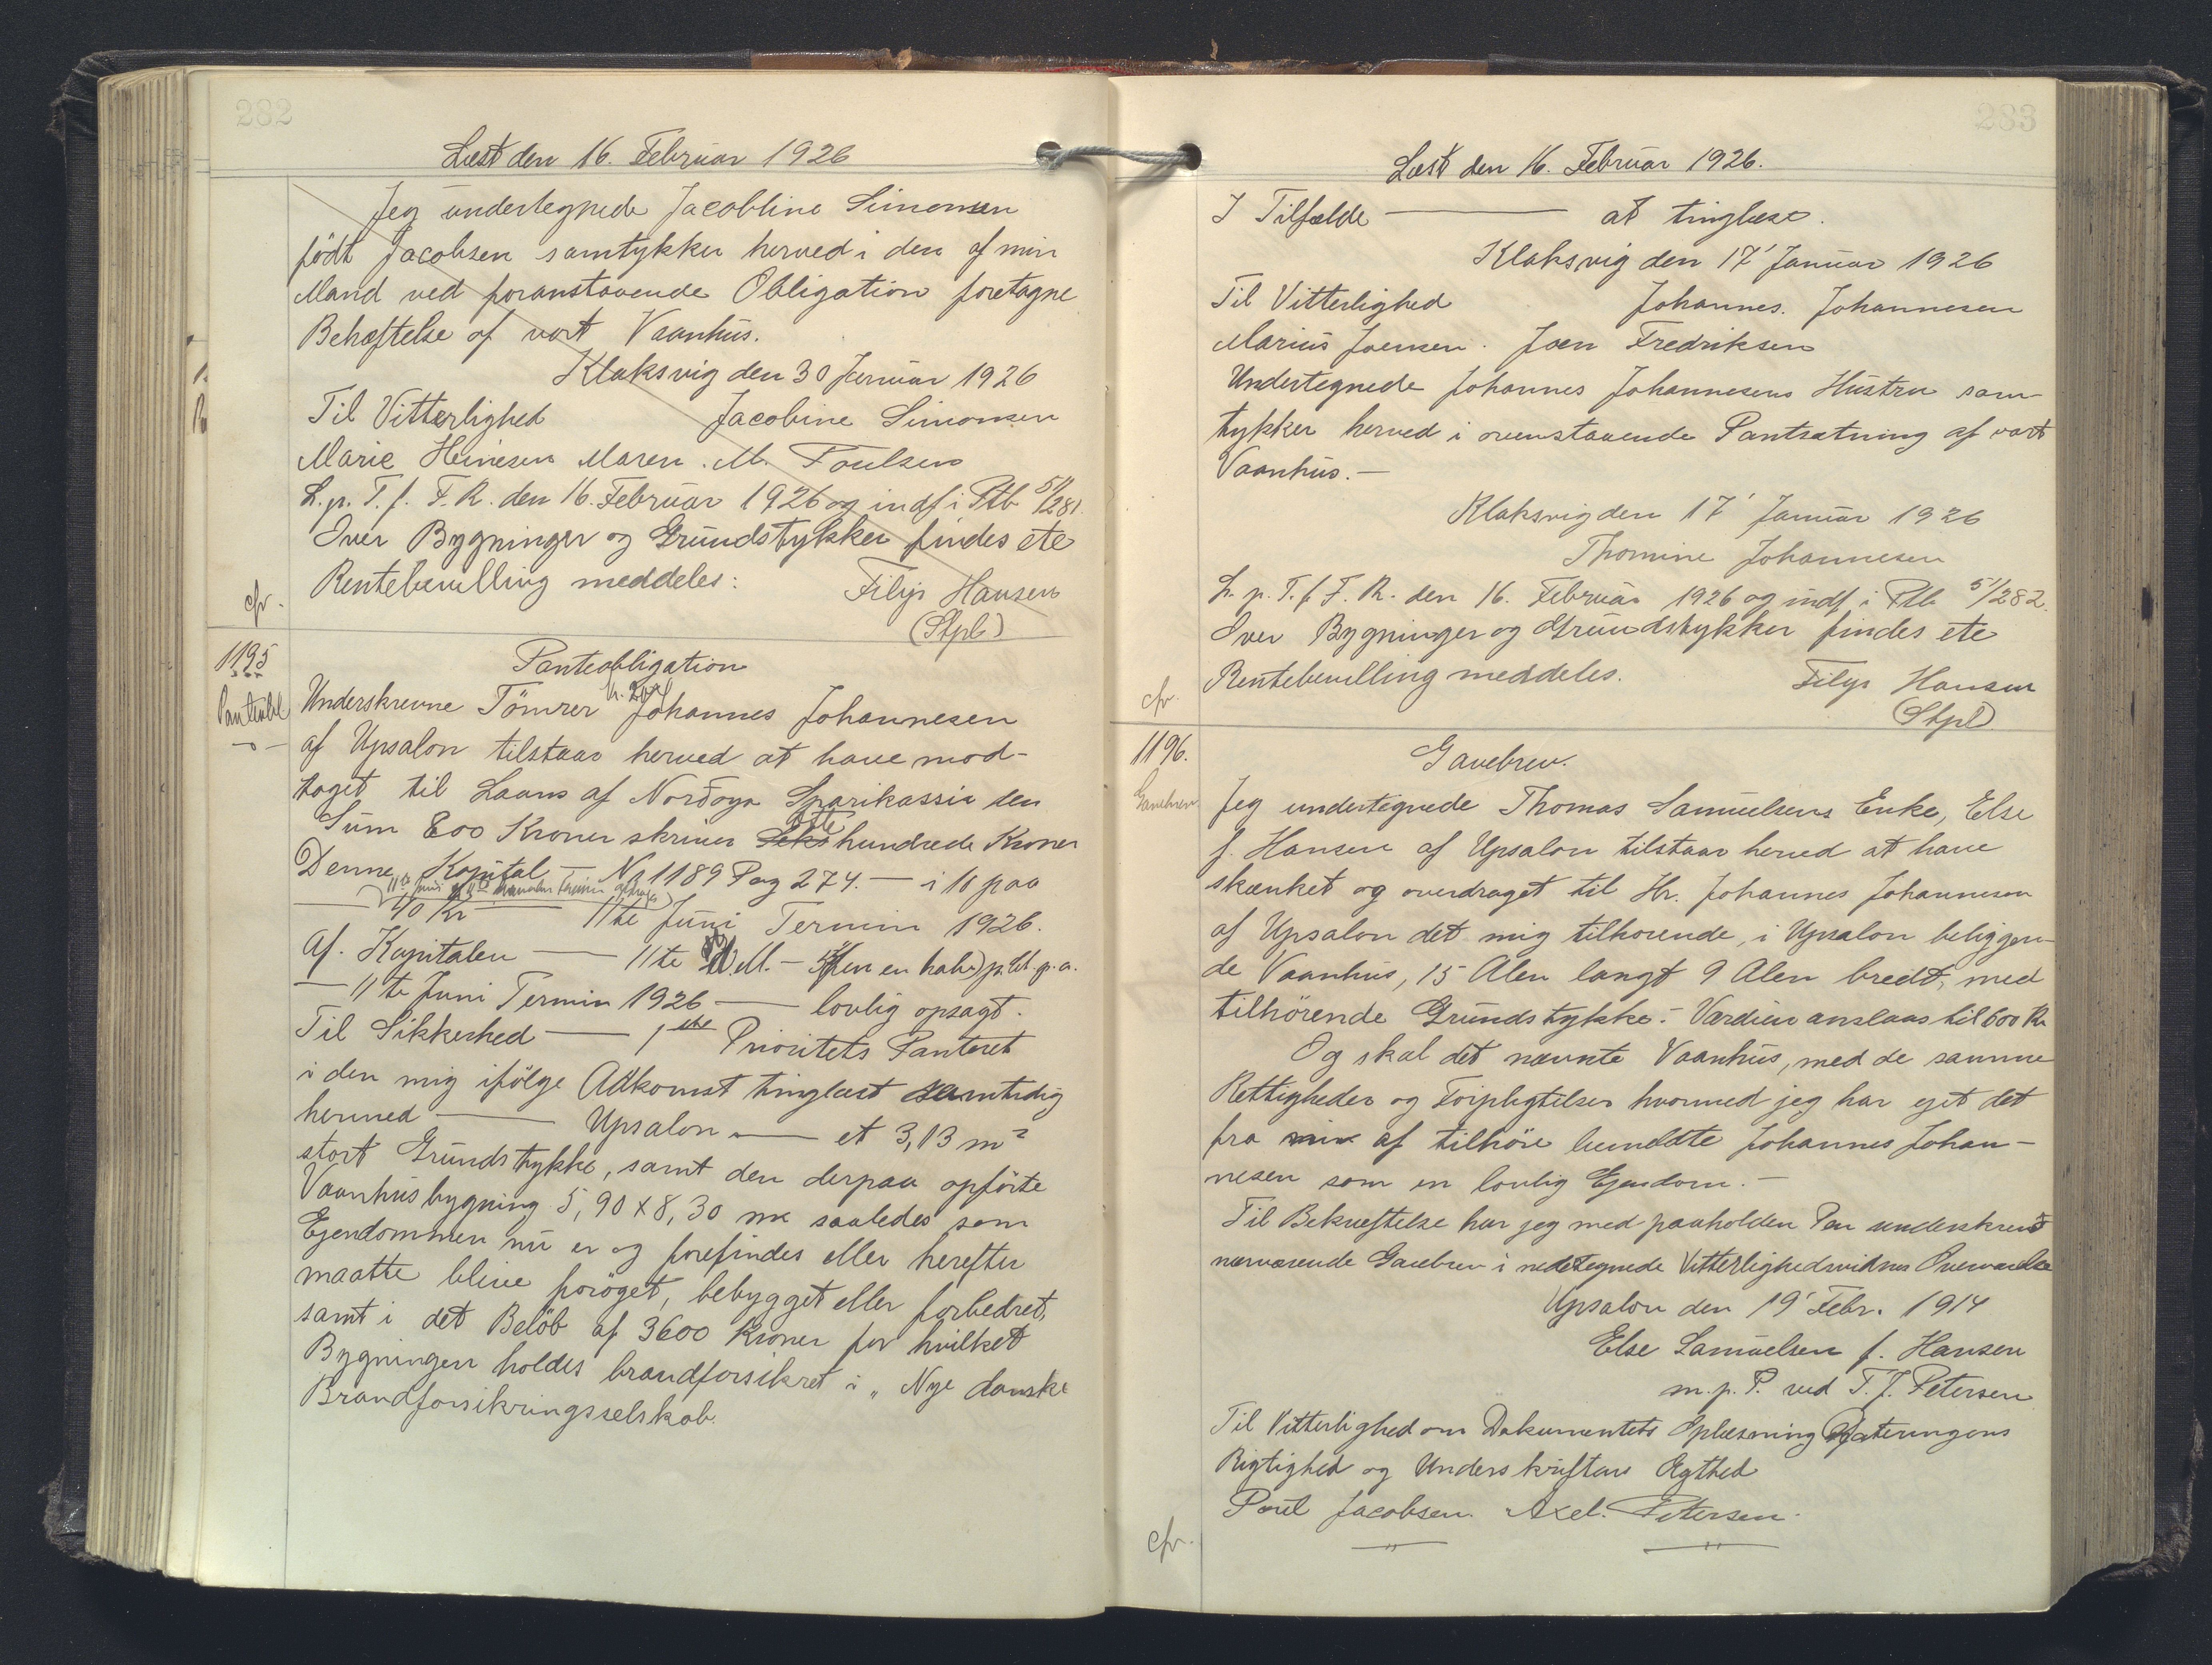 282
Læst den 16. Februar 1926
Jeg undertegnede Jacobline Simonsen
født Jacobsen samtykker herved i den af min
Mand ved foranstaaende Obligation foretagne
Behæftelse af vort Vaanhus.
Klaksvig den 30 Januar 1926
Til Vitterlighed Jacobine Simonsen
Marie Heinesen Maren. M. Poulsen
L. p. T. f. F. R. den 16. Februar 1926 og indf i Ptb 51/281.
Over Bygninger og Grundstykker findes ete
Rentebevilling meddeles: Filip Hansen
cfr. (Stpl)
1195
Pantobl
Panteobligation
Kr. 800
Underskrevne Tömrer Johannes Johannesen
af Upsalon tilstaar herved at have mod-
taget til Laans af Norðoya Sparikassi den
Sum 800 Kroner skriver Seks Otte hundrede Kroner
Denne Kapital — No 1189 Pag 274. — i 10 paa
— 40 Kr — 11te Juni Termin 1926.
Af. Kapitalen — 11te D. M. — (fem en halv) p. Ct. p. a.
— 11te Juni Termin 1926 — lovlig opsagt.
Til Sikkerhed — 1ste Prioritets Panteret
i den mig ifölge Adkomst tinglæst samtidig
hermed — Upsalon — et 3,13 m²
stort Grundstykke, samt den derpaa opförte
Vaanhusbygning 5,90 x 8,30 m saaledes som
Ejendommen nu er og forefindes eller herefter
maatte blive foröget, bebygget eller forbedret,
samt i det Belöb af 3600 Kroner for hvilket
Bygningen holdes brandforsikret i „ Nye danske
Brandforsikringsselskab.
283
Læst den 16. Februar 1926.
I Tilfælde — at tinglæse.
Klaksvig den 17' Januar 1926
Til Vitterlighed Johannes. Johannesen
Marius Joensen. Joen Fredriksen
Undertegnede Johannes Johannesens Hustru sam-
tykker herved i ovenstaaende Pantsætning af vort
Vaanhus.—
Klaksvig den 17' Januar 1926
Thomine Johannesen
L. p. T. f. F. R. den 16. Februar 1926 og indf i Ptb 51/282.
Over Bygninger og Grundstykker findes ete
Rentebevilling meddeles. Filip Hansen
cfr. (Stpl)
1196.
Gavebrev
Gavebrev.
Jeg undertegnede Thomas Samuelsens Enke, Else
f. Hansen af Upsalon tilstaar herved at have
skænket og overdraget til Hr. Johannes Johannesen
af Upsalon det mig tilhorende, i Upsalon beliggen-
de Vaanhus, 15 Alen langt 9 Alen bredt, med
tilhörende Grundstykke. Værdien anslaas til 600 Kr
Og skal det nævnte Vaanhus, med de samme
Rettigheder og Forpligtelser hvormed jeg har ejet det
fra nu af tilhöre bemeldte Johannes Johan-
nesen som en lovlig Ejendom.—
Til Bekræftelse har jeg med paaholden Pen underskrevet
nærværende Gavebrev i nedetegnede Vitterlighedsvidners Overværelse
Upsalon den 19' Febr. 1914
Else Samuelsen f. Hansen
m. p. P. ved T. J. Petersen
Til Vitterlighed om Dokumentets Oplæsning Dateringens
Rigtighed og Underskriftens Ægthed
Poul Jacobsen. Axel. Petersen.
cfr.